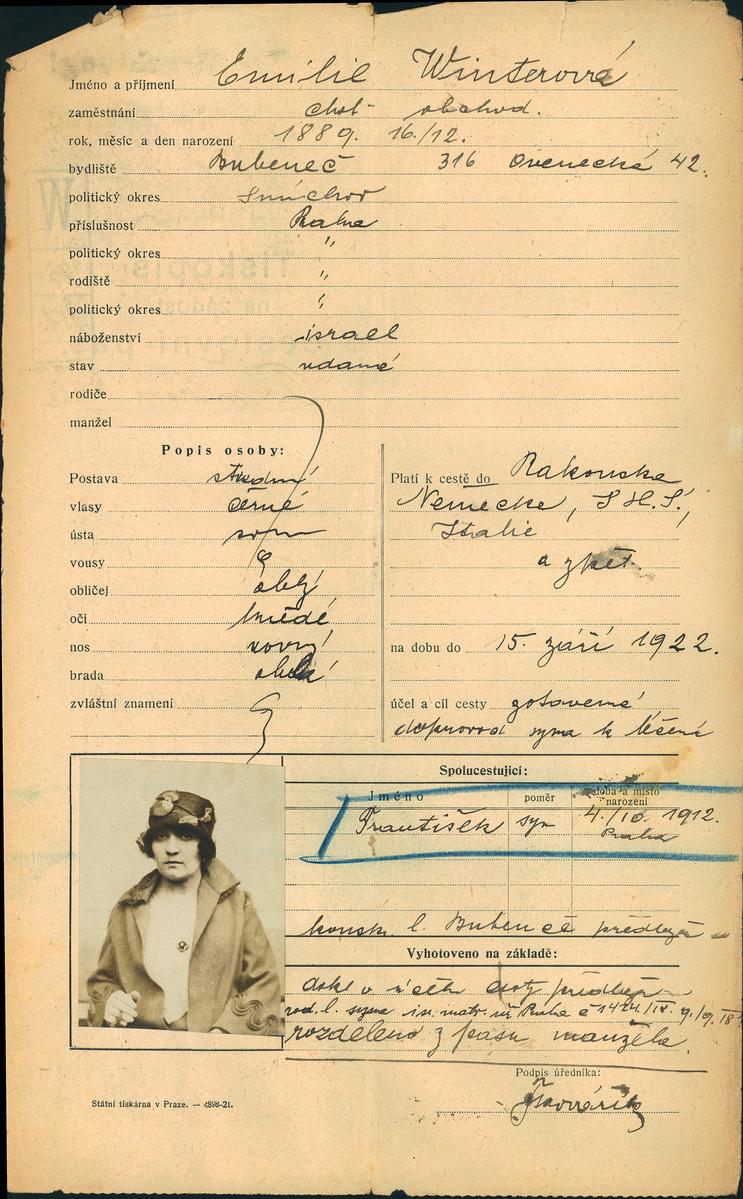 Jméno a příjmení Emilie Winterová
zaměstnání choť obchod.
rok, měsíc a den narození 1889. 16./12.
bydliště Bubeneč 316 Ovenecká 42.
politický okres Smíchov
příslušnost Praha
politický okres "
rodiště "
politický okres "
náboženství israel
stav vdaná
rodiče
manžel
Popis osoby:
Postava střední
vlasy černé
ústa
vousy
obličej oblý
oči hnědé
nos rovný
brada oblá
zvláštní znamení
Platí k cestě do Rakouska
Německa, S.H.S.,
Italie
a zpět.
na dobu do 15. září 1922.
účel a cíl cesty
doprovod syna k léčení
Spolucestující:
Jméno poměr doba a místo narození
František syn 4./10. 1912.
Praha
konsk. l. Bubeneč předlož
Vyhotoveno na základě:
dokl. o účelu cesty předlož
rod. l. syna isr. matr. Praha
rozděleno z pasu manžela.
Podpis úředníka:
Státní tiskárna v Praze. — 4898-21.